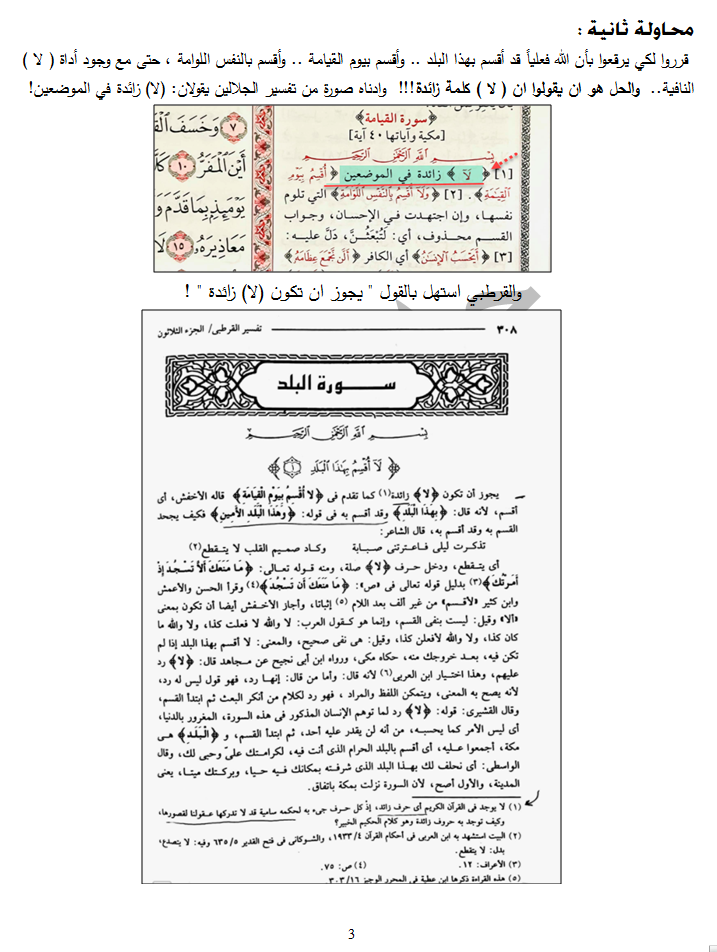 محاولة ثانية :
قرروا لكي يرقعوا بأن الله فعلياً قد أقسم بهذا البلد .. وأقسم بيوم القيامة .. وأقسم بالنفس اللوامة ، حتى مع وجود أداة ( لا )
النافية.. والحل هو ان يقولوا ان ( لا ) كلمة زائدة!!! وادناه صورة من تفسير الجلالين يقولان: (لا) زائدة في الموضعين!
﴿سورة القيامة﴾
[مكية وآياتها ٤٠ آية]
بِسْمِ اللَّهِ الرَّحْمَٰنِ الرَّحِيمِ
[١] ﴿ لَآ ﴾ زائدة في الموضعين ﴿ أُقْسِمُ بِيَوْمِ
الْقِيَٰمَةِ ﴾. [٢] ﴿ وَلَآ أُقْسِمُ بِالنَّفْسِ اللَّوَّامَةِ ﴾ التي تلوم
نفسها، وإن اجتهدت في الإحسان، وجواب
القسم محذوف، أي: لَتُبْعَثُنَّ، دَلَّ عليه:
[٣] ﴿ أَيَحْسَبُ الْإِنسَٰنُ ﴾ أي الكافر ﴿ أَلَّن نَّجْمَعَ عِظَامَهُ ﴾
٧ وَخَسَفَ
أَيْنَ الْمَفَرُّ ١٠
يَوْمَئِذٍ بِمَا قَدَّمَ
مَعَاذِيرَهُ ١٥ لَا
والقرطبي استهل بالقول " يجوز ان تكون (لا) زائدة " !
٣٠٨ تفسير القرطبى/ الجزء الثلاثون
سورة البلد
بِسْمِ اللَّهِ الرَّحْمَٰنِ الرَّحِيمِ
﴿ لَآ أُقْسِمُ بِهَٰذَا الْبَلَدِ ١ ﴾
يجوز أن تكون ﴿لا﴾ زائدة(١) كما تقدم فى ﴿لا أُقْسِمُ بِيَوْمِ الْقِيَامَةِ﴾ قاله الأخفش، أى
أقسم، لأنه قال: ﴿بِهَذَا الْبَلَدِ﴾ وقد أقسم به فى قوله: ﴿وَهَذَا الْبَلَدِ الأَمِينِ﴾ فكيف يجحد
القسم به وقد أقسم به، قال الشاعر:
تذكرت ليلى فاعترتنى صبابة وكاد صميم القلب لا يتقطع(٢)
أى يتقطع، ودخل حرف ﴿لا﴾ صلة، ومنه قوله تعالى: ﴿مَا مَنَعَكَ أَلاَّ تَسْجُدَ إِذْ
أَمَرْتُكَ﴾(٣) بدليل قوله تعالى فى «ص»: ﴿مَا مَنَعَكَ أَن تَسْجُدَ﴾(٤) وقرأ الحسن والأعمش
وابن كثير «لأقسم» من غير ألف بعد اللام (٥) إثباتا، وأجاز الأخفش أيضا أن تكون بمعنى
«ألا» وقيل: ليست بنفى القسم، وإنما هو كقول العرب: لا والله لا فعلت كذا، ولا والله ما
كان كذا، ولا والله لأفعلن كذا، وقيل: هى نفى صحيح، والمعنى: لا أقسم بهذا البلد إذا لم
تكن فيه، بعد خروجك منه، حكاه مكى، ورواه ابن أبى نجيح عن مجاهد قال: ﴿لا﴾ رد
عليهم، وهذا اختيار ابن العربى(٦) لأنه قال: وأما من قال: إنها رد، فهو قول ليس له رد،
لأنه يصح به المعنى، ويتمكن اللفظ والمراد ، فهو رد لكلام من أنكر البعث ثم ابتدأ القسم،
وقال القشيرى: قوله: ﴿لا﴾ رد لما توهم الإنسان المذكور فى هذه السورة، المغرور بالدنيا،
أى ليس الأمر كما يحسبه، من أنه لن يقدر عليه أحد، ثم ابتدأ القسم، و ﴿الْبَلَدِ﴾ هى
مكة، أجمعوا عليه، أى أقسم بالبلد الحرام الذى أنت فيه، لكرامتك علىّ وحبى لك، وقال
الواسطى: أى نحلف لك بهذا البلد الذى شرفته بمكانك فيه حيا، وبركتك ميتا، يعنى
المدينة، والأول أصح، لأن السورة نزلت بمكة باتفاق.
(١) لا يوجد فى القرآن الكريم أى حرف زائد، إذ كل حرف جىء به لحكمه سامية قد لا تدركها عقولنا لقصورها،
وكيف توجد به حروف زائدة وهو كلام الحكيم الخبير؟
(٢) البيت استشهد به ابن العربى فى أحكام القرآن ١٩٣٣/٤، والشوكانى فى فتح القدير ٦٣٥/٥ وفيه: لا يتصدع،
بدل: لا يتقطع.
(٣) الأعراف: ١٢. (٤) ص: ٧٥.
(٥) هذه القراءة ذكرها ابن عطية فى المحرر الوجيز ٣٠٣/١٦
3